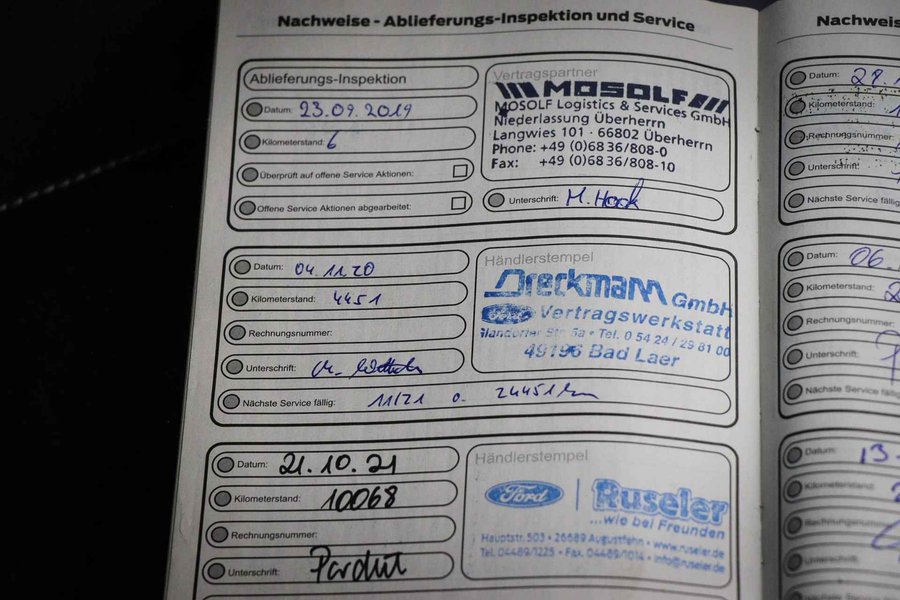 Nachweise - Ablieferungs-Inspektion und Service
Ablieferungs-Inspektion
Datum: 23.09.2019
Kilometerstand: 6
Überprüft auf offene Service Aktionen:
Offene Service Aktionen abgearbeitet:
Vertragspartner
MOSOLF
MOSOLF Logistics & Services GmbH
Niederlassung Überherrn
Langwies 101 · 66802 Überherrn
Phone: +49 (0)68 36/808-0
Fax: +49 (0)68 36/808-10
Unterschrift: M. Hock
Datum: 04.11.20
Kilometerstand: 4451
Rechnungsnummer:
Unterschrift:
Nächste Service fällig: 11/21 o. 24451km
Händlerstempel
Dreckmann GmbH
Ford Vertragswerkstatt
Str 5a • Tel. 0 54 24 / 29 81 00
49196 Bad Laer
Datum: 21.10.21
Kilometerstand: 10068
Rechnungsnummer:
Unterschrift:
Händlerstempel
Ford Ruseler
...wie bei Freunden
Hauptstr. 503 • 26689 Augustfehn • www.ruseler.de
Tel. 04489/1225 • Fax. 04489/1014 • info@ruseler.de
Nachweis
Datum: 28.
Kilometerstand:
Rechnungsnummer:
Unterschrift:
Nächste Service fällig
Datum: 06.
Kilometerstand:
Rechnungsnummer:
Unterschrift:
Nächste Service fällig
Datum: 13.
Kilometerstand:
Rechnungsnummer:
Unterschrift: